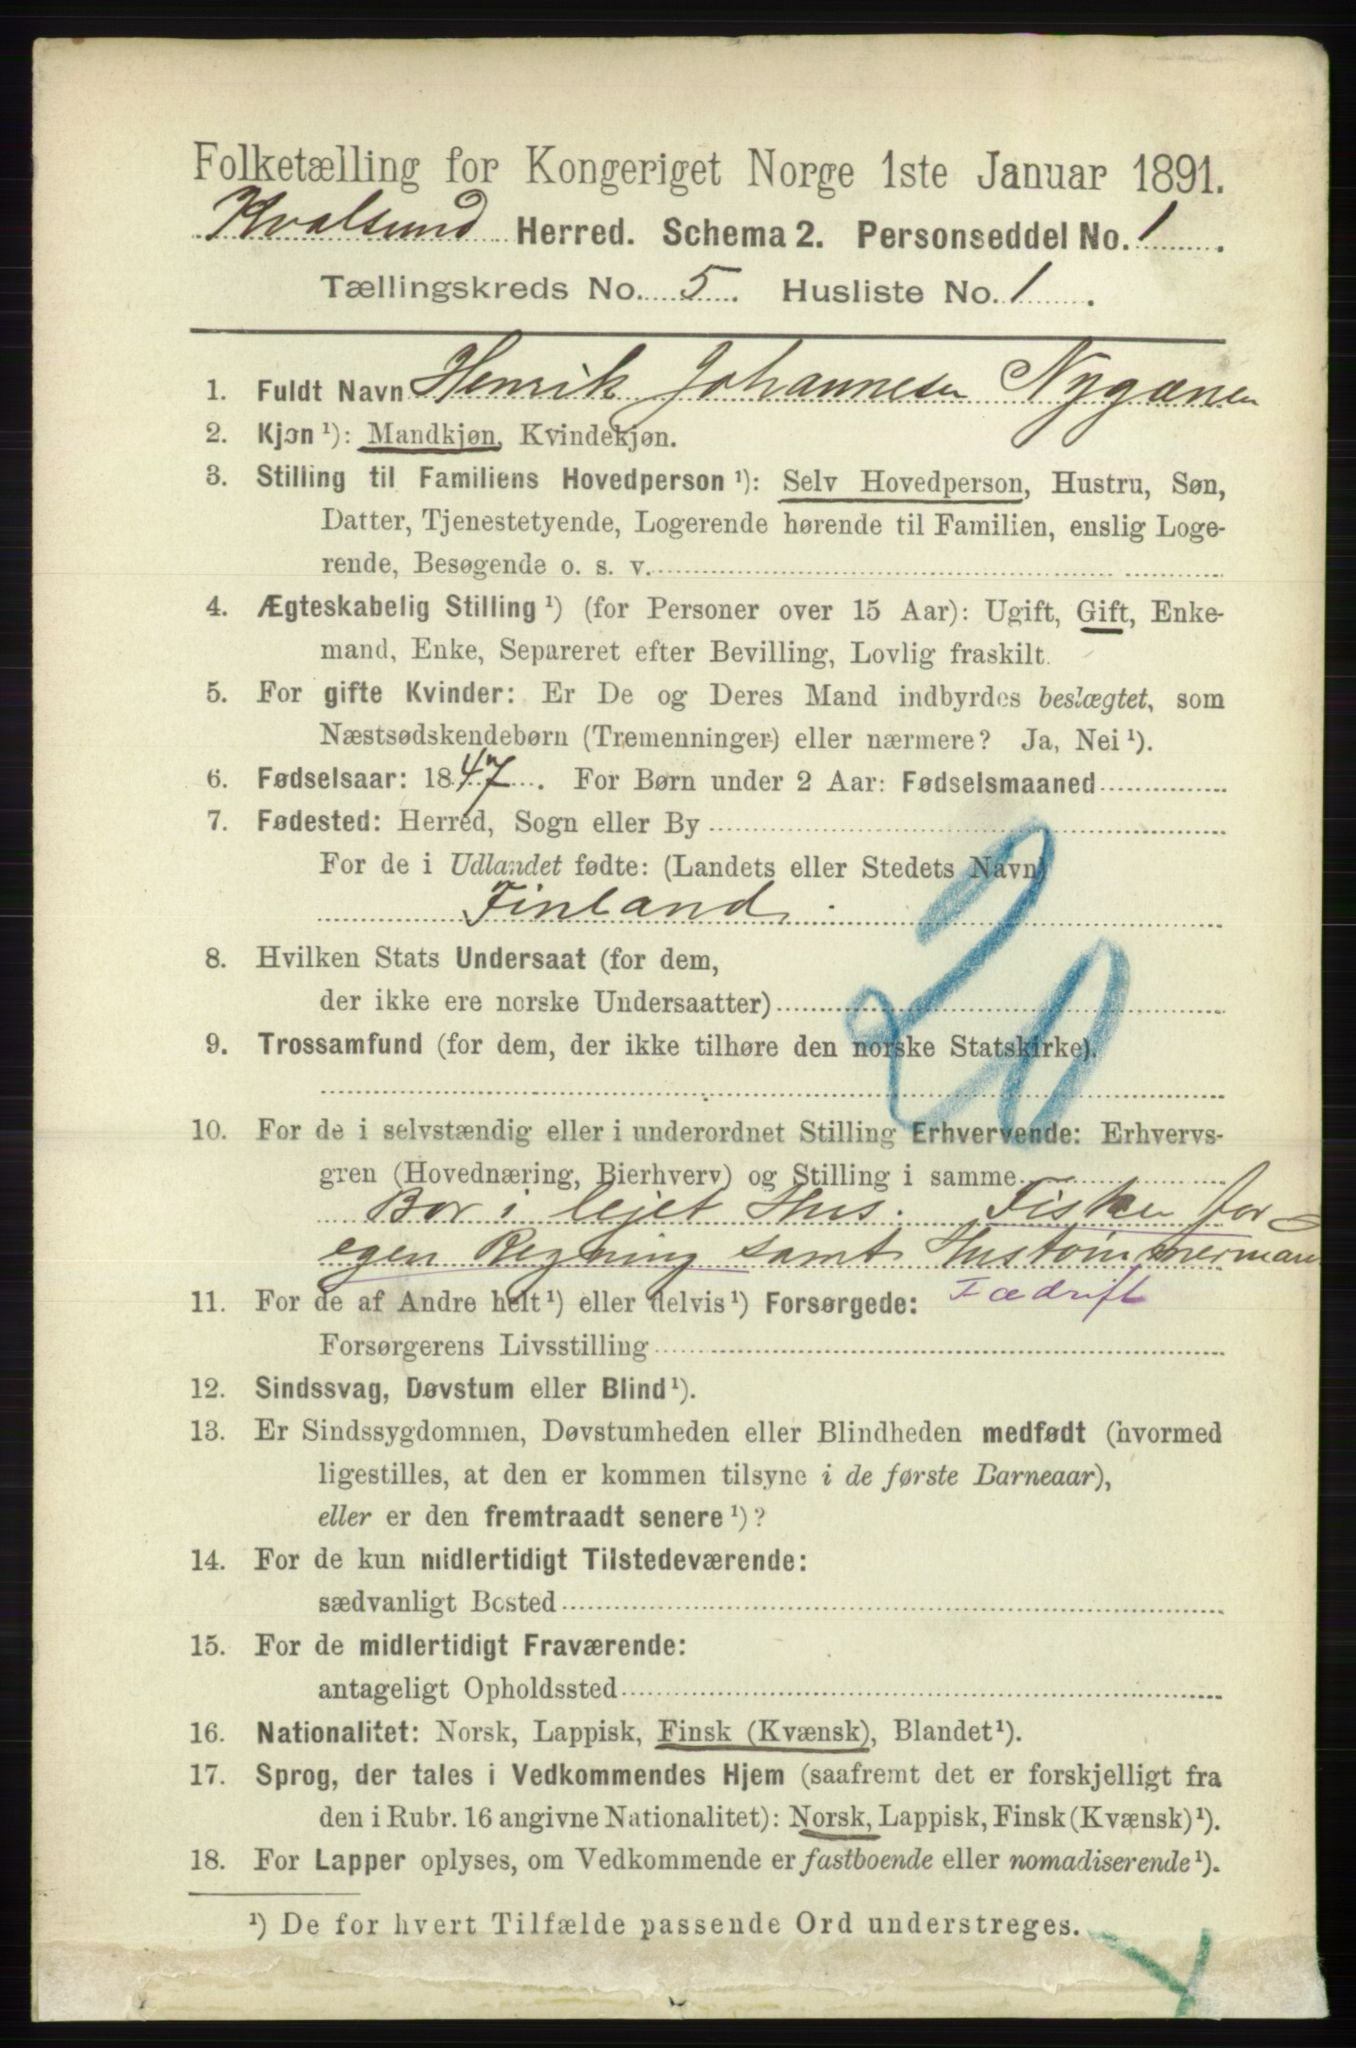 Folketælling for Kongeriget Norge 1ste Januar 1891.
Kvalsund Herred. Schema 2. Personseddel No. 1.
Tællingskreds No. 5. Husliste No. 1.
1. Fuldt Navn Henrik Johannesen Nyganen
2. Kjøn ¹): Mandkjøn, Kvindekjøn.
3. Stilling til Familiens Hovedperson ¹): Selv Hovedperson, Hustru, Søn,
Datter, Tjenestetyende, Logerende hørende til Familien, enslig Loge-
rende, Besøgende o. s. v.
4. Ægteskabelig Stilling ¹) (for Personer over 15 Aar): Ugift, Gift, Enke-
mand, Enke, Separeret efter Bevilling, Lovlig fraskilt.
5. For gifte Kvinder: Er De og Deres Mand indbyrdes beslægtet, som
Næstsødskendebørn (Tremenninger) eller nærmere? Ja, Nei ¹).
6. Fødselsaar: 1847. For Børn under 2 Aar: Fødselsmaaned
7. Fødested: Herred, Sogn eller By
For de i Udlandet fødte: (Landets eller Stedets Navn)
Finland.
20
8. Hvilken Stats Undersaat (for dem,
der ikke ere norske Undersaatter)
9. Trossamfund (for dem, der ikke tilhøre den norske Statskirke).
10. For de i selvstændig eller i underordnet Stilling Erhvervende: Erhvervs-
gren (Hovednæring, Bierhverv) og Stilling i samme
Bor i lejet Hus. Fisker for
egen Regning samt Hustømmerman
Fædrift
11. For de af Andre helt ¹) eller delvis ¹) Forsørgede:
Forsørgerens Livsstilling
12. Sindssvag, Døvstum eller Blind ¹).
13. Er Sindssygdommen, Døvstumheden eller Blindheden medfødt (hvormed
ligestilles, at den er kommen tilsyne i de første Barneaar),
eller er den fremtraadt senere ¹)?
14. For de kun midlertidigt Tilstedeværende:
sædvanligt Bosted
15. For de midlertidigt Fraværende:
antageligt Opholdssted
16. Nationalitet: Norsk, Lappisk, Finsk (Kvænsk), Blandet ¹).
17. Sprog, der tales i Vedkommendes Hjem (saafremt det er forskjelligt fra
den i Rubr. 16 angivne Nationalitet): Norsk, Lappisk, Finsk (Kvænsk) ¹).
18. For Lapper oplyses, om Vedkommende er fastboende eller nomadiserende ¹).
¹) De for hvert Tilfælde passende Ord understreges.